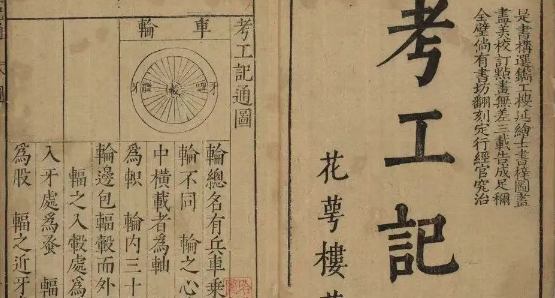 是書搆選鐫工樓延繪士書圖
盡美校訂點畫無差三載告成足稱
全璧倘有書坊翻刻定行經官究治
考工記
花萼樓
考工記通圖
車輪
牙
牙
輪總名有兵車乘
輪不同 輪之心
中橫載者為軸
為軹 輪內三十
輪邊包輻轂而外
輻之入轂處為
入牙處為蚤 輻
為股 輻之近牙